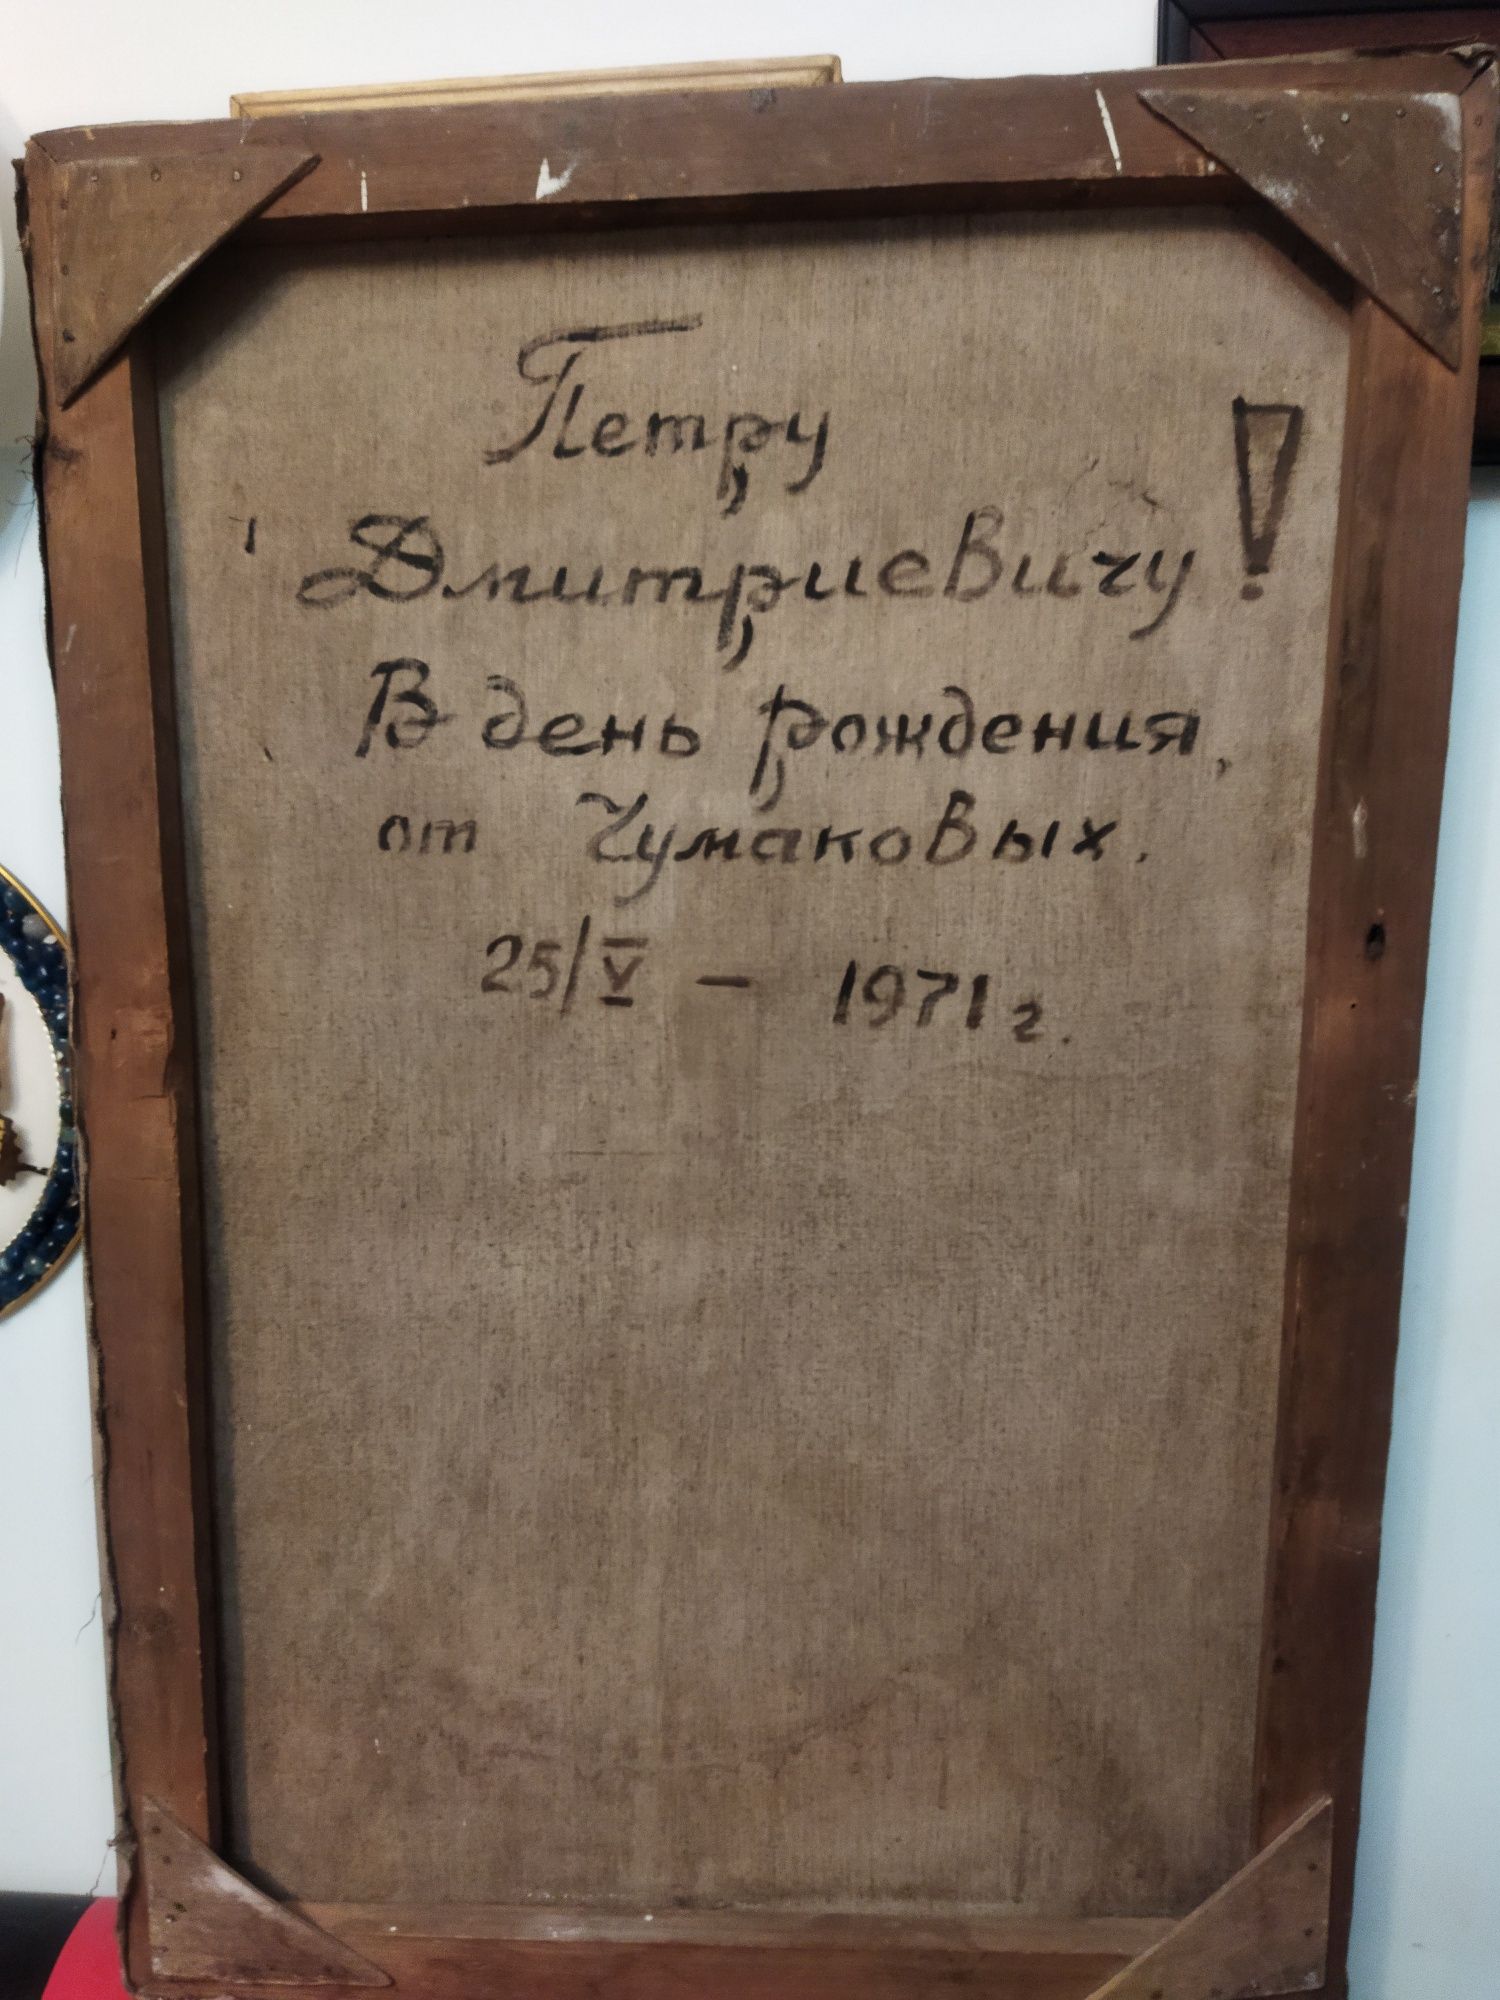 Петру
Дмитриевичу!
В день рождения,
от Чумаковых.
25/V – 1971 г.